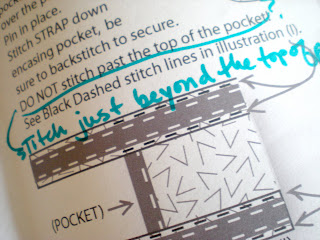 over the p
Pin in place.
Stitch STRAP down
encasing pocket, be
sure to backstitch to secure.
DO NOT stitch past the top of the pocket!
?
See Black Dashed stitch lines in illustration (I).
stitch just beyond the top of
(POCKET)